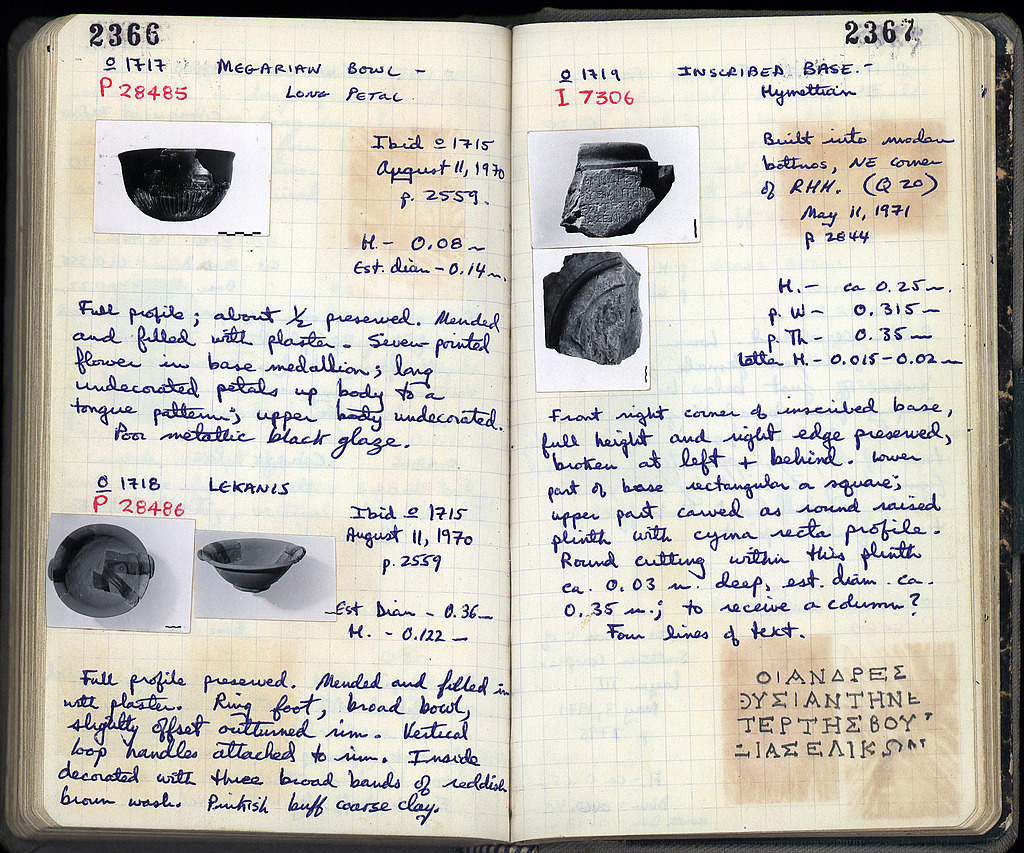 2366
o 1717 MEGARIAN BOWL -
P 28485 LONG PETAL
Ibid o 1715
August 11, 1970
p. 2559.
H. - 0.08 m
Est. diam - 0.14 m.
Full profile; about 1/2 preserved. Mended
and filled with plaster. Seven pointed
flower in base medallion; long
undecorated petals up body to a
tongue pattern; upper body undecorated.
Poor metallic black glaze.
o 1718 LEKANIS
P 28486
Ibid o 1715
August 11, 1970
p. 2559
Est Diam - 0.36 m
H. - 0.122 m
Full profile preserved. Mended and filled in
with plaster. Ring foot, broad bowl,
slightly offset outturned rim. Vertical
loop handles attached to rim. Inside
decorated with three broad bands of reddish
brown wash. Pinkish buff coarse clay.
2367
o 1719 INSCRIBED BASE. -
I 7306 Hymettian
Built into modern
bothros, NE corner
of RHH. (Q 20)
May 11, 1971
p 2844
H. - ca 0.25 m.
p. W - 0.315 m
p. Th - 0.35 m
letter H. - 0.015-0.02 m
Front right corner of inscribed base,
full height and right edge preserved,
broken at left + behind. Lower
part of base rectangular or square;
upper part carved as round raised
plinth with cyma recta profile.
Round cutting within this plinth
ca. 0.03 m. deep, est. diam. ca.
0.35 m.; to receive a column?
Four lines of text.
ΟΙΑΝΔΡΕΣ
ΘΥΣΙΑΝΤΗΝΕ
ΤΕΡΤΗΣΒΟΥ
ΙΑΣΕΛΙΚΩΝ